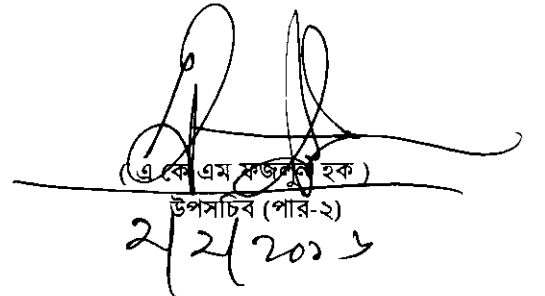 ( এ কে এম ফজলুল হক )
উপসচিব (পার-২)
২/২/২০১৬